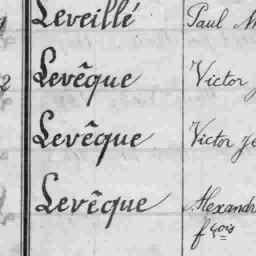 Leveillé Paul
2 Levêque Victor
Levêque Victor
Levêque Alexand
fçois